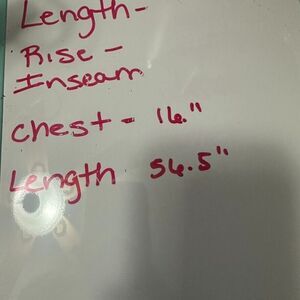 Length-
Rise -
Inseam
Chest - 16."
Length 56.5"